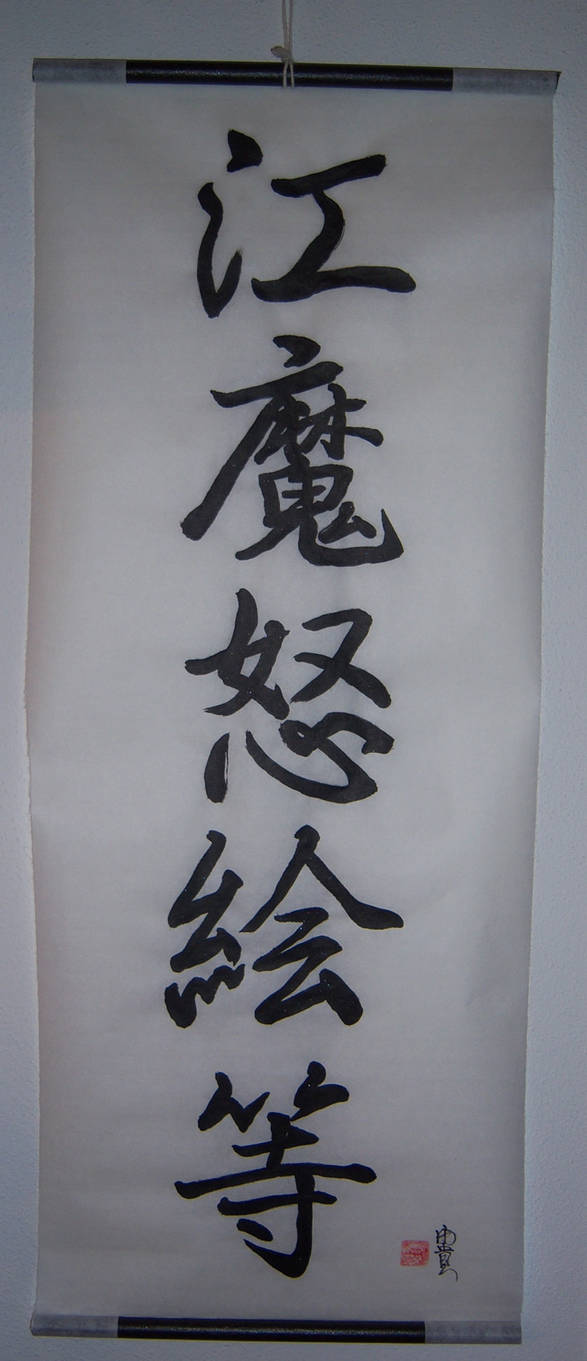 江魔怒絵等